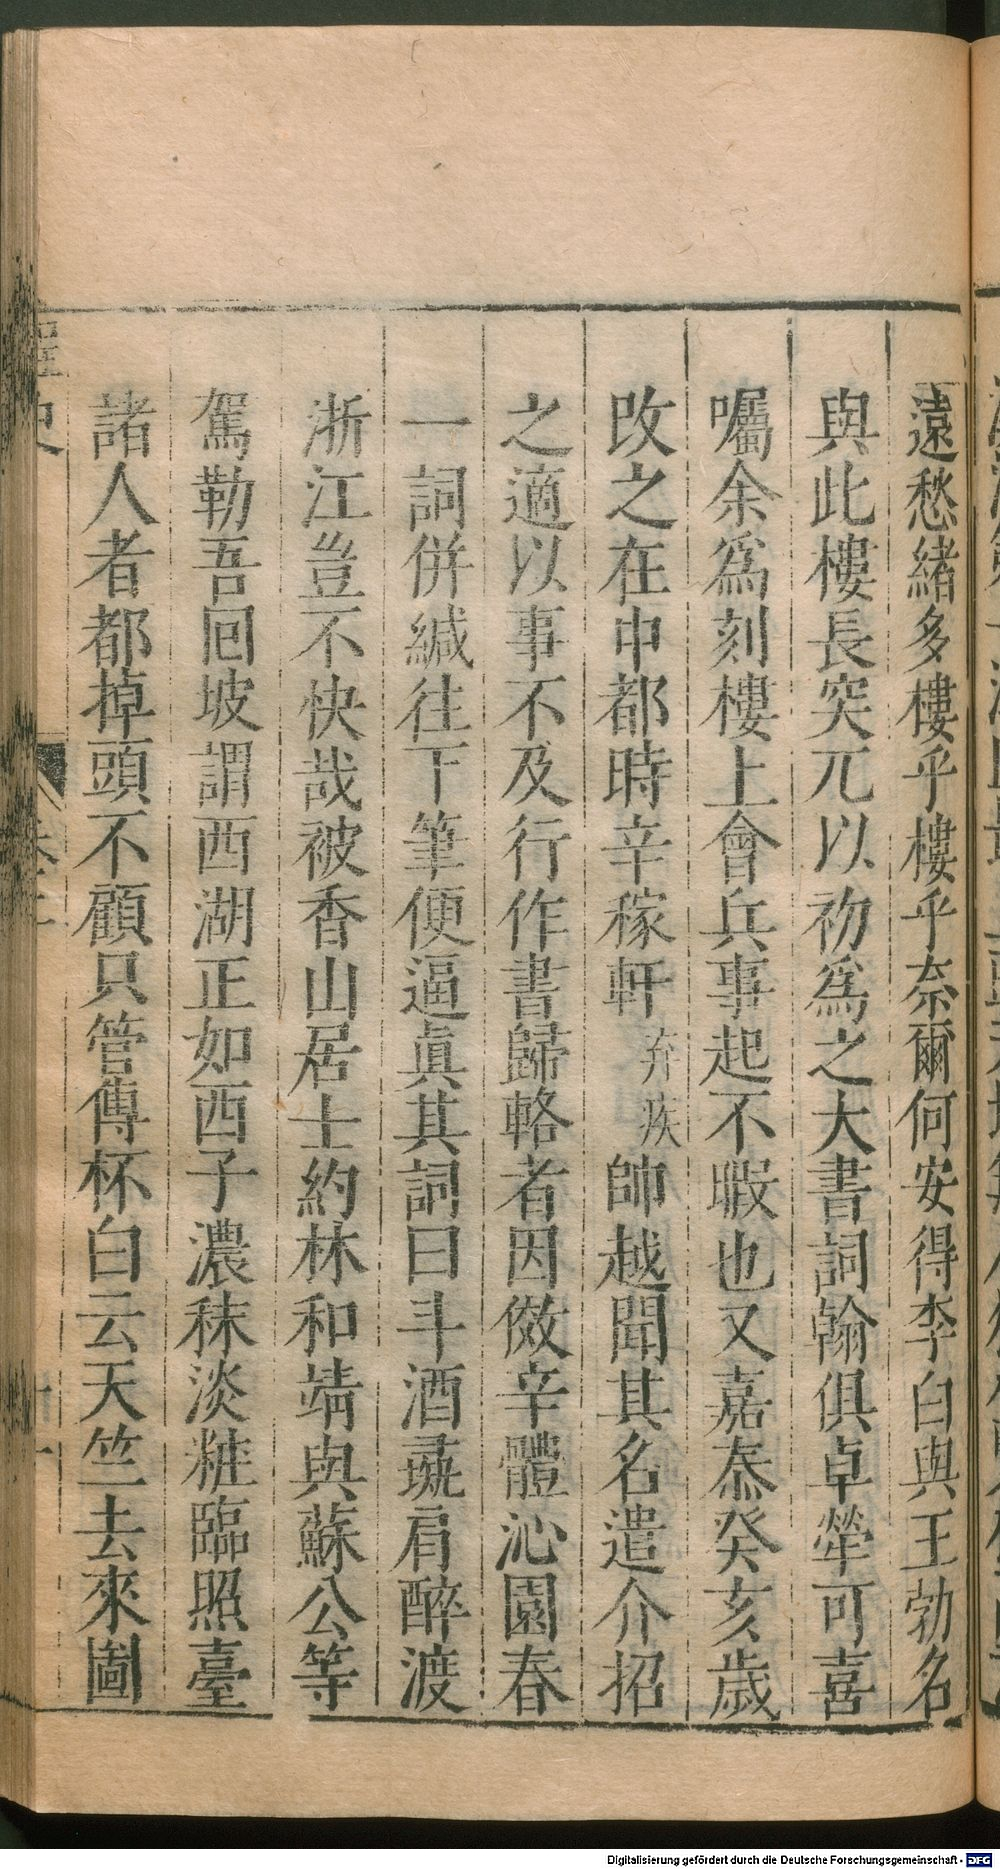 遠愁緒多樓乎樓乎奈爾何安得李白與王勃名
與此樓長突兀以礽爲之大書詞翰俱卓犖可喜
囑余爲刻樓上會兵事起不暇也又嘉泰癸亥歲
改之在中都時辛稼軒弃疾帥越聞其名遣介招
之適以事不及行作書歸輅者因倣辛體沁園春
一詞併緘往下筆便逼眞其詞曰斗酒彘肩醉渡
浙江豈不快哉被香山居士約林和靖與蘇公等
駕勒吾囘坡謂西湖正如西子濃秣淡粧臨照臺
諸人者都掉頭不顧只管傳杯白云天竺去來圖
Digitalisierung gefördert durch die Deutsche Forschungsgemeinschaft - DFG